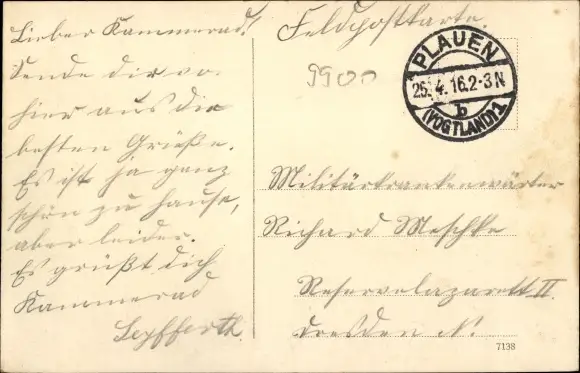 Lieber Kammerad!
Sende dir von
hier aus die
besten Grüße.
Es ist ja ganz
schön zu hause,
aber leider.
Es grüßt dich
Kammerad
Seyfferth.
Feldpostkarte.
9900
PLAUEN
25.4.16.2-3N
b
(VOGTLAND)1
Militärkrankenwärter
Richard Meschke
Reservelazarett II
Dresden N.
7138